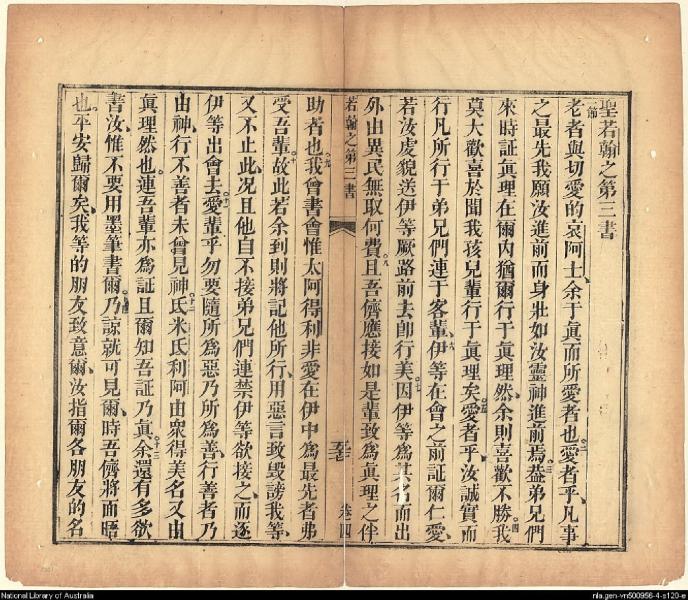 聖若翰之第三書
一節 老者與切愛的哀阿士、余于眞而所愛者也。二 愛者乎、凡事
之最先我願汝進前而身壯如汝靈神進前焉。三 葢弟兄們
來時証眞理在爾內猶爾行于眞理然、余則喜歡不勝。四 我
莫大歡喜於聞我孩兒輩行于眞理矣。五 愛者乎、汝誠實而
行凡所行于弟兄們連于客輩、六 伊等在會之前証爾仁愛、
若汝處貌送伊等厥路前去卽行美。七 因伊等爲其名而出
外由異民無取何費。八 且吾儕應接如是輩致爲眞理之伴
若翰之第三書 卷四
助者也。九 我會書會惟太阿得利非愛在伊中爲最先者弗
受吾輩。十 故此若余到則將記他所行、用惡言致毀謗我等、
又不止此、况且他自不接弟兄們連禁伊等欲接之而逐
伊等出會去。十一 愛輩乎勿要隨所爲惡乃所爲善、行善者乃
由神、行不善者未曾見神。十二 氐米氐利阿由衆得美名又由
眞理然也。連吾輩亦爲証且爾知吾証乃眞。十三 余還有多欲
書汝、惟不要用墨筆書爾。十四 乃諒就可見爾、時吾儕將面晤
也。平安歸爾矣、我等的朋友致意爾、汝指爾各朋友的名
National Library of Australia
nla.gen-vn500956-4-s120-e